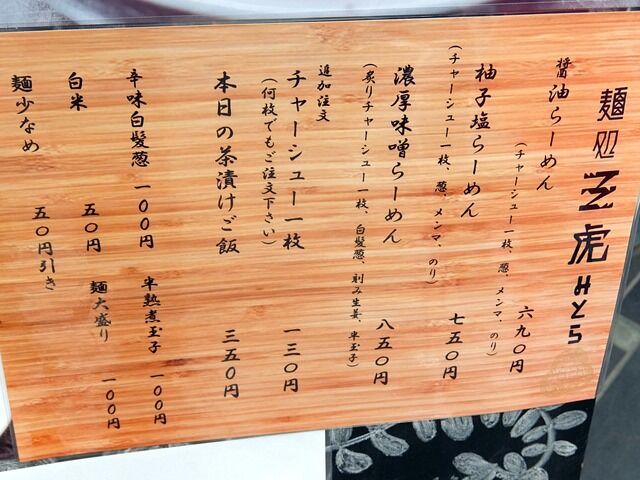 麺処 玉虎 みとら
醤油らーめん 六九〇円
(チャーシュー一枚、葱、メンマ、のり)
柚子塩らーめん 七五〇円
(チャーシュー一枚、葱、メンマ、のり)
濃厚味噌らーめん 八五〇円
(炙りチャーシュー一枚、白髪葱、刻み生姜、半玉子)
追加注文
チャーシュー一枚 一三〇円
(何枚でもご注文下さい)
本日の茶漬けご飯 三五〇円
辛味白髪葱 一〇〇円
半熟煮玉子 一〇〇円
白米 五〇円
麺大盛り 一〇〇円
麺少なめ 五〇円引き